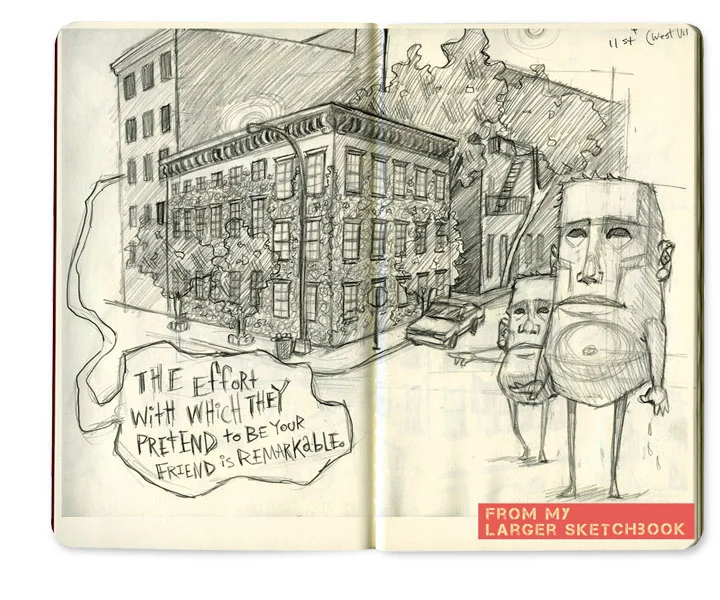 11 st (West Vil
THE EffoRt
WitH WHicH THEY
PREtEND to BE YOUR
FRIEND is REMARKabLE.
FROM MY
LARGER SKETCHBOOK